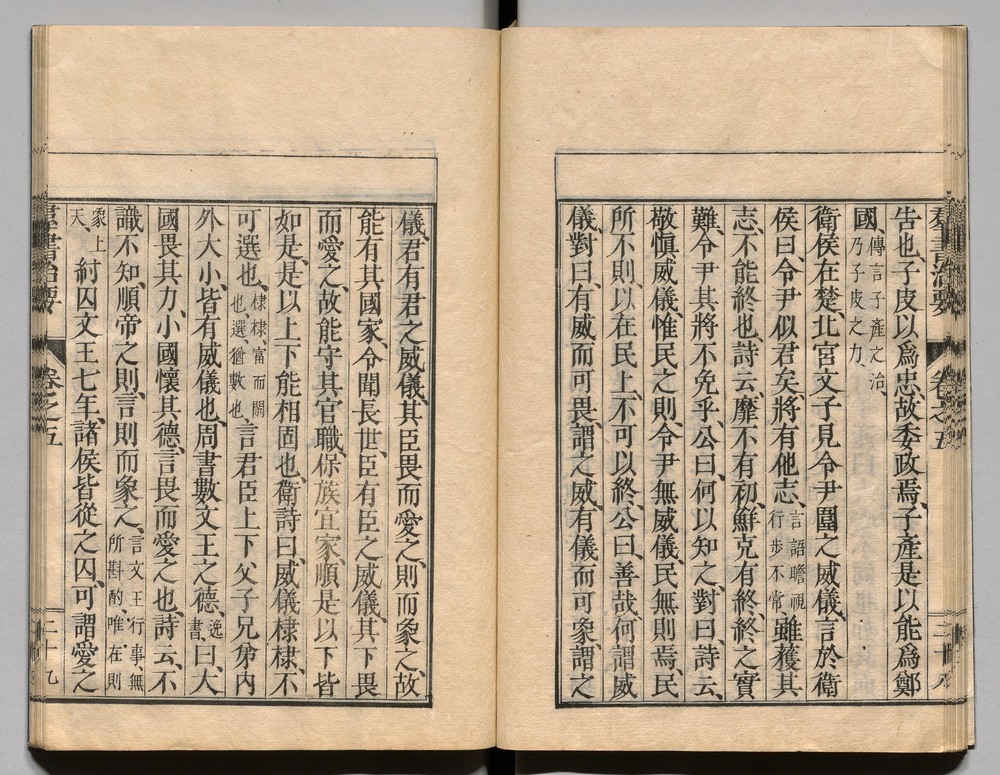 告也、子皮以爲忠、故委政焉、子產是以能爲鄭
國、傳言子產之治、乃子皮之力、
衞侯在楚、北宮文子見令尹圍之威儀、言於衞
侯曰、令尹似君矣、將有他志、言語瞻視行步不常、雖獲其
志、不能終也、詩云、靡不有初、鮮克有終、終之實
難、令尹其將不免乎、公曰、何以知之、對曰、詩云、
敬愼威儀、惟民之則、令尹無威儀、民無則焉、民
所不則、以在民上、不可以終、公曰、善哉、何謂威
儀、對曰、有威而可畏、謂之威、有儀而可象、謂之
儀、君有君之威儀、其臣畏而愛之、則而象之、故
能有其國家、令聞長世、臣有臣之威儀、其下畏
而愛之、故能守其官職、保族宜家、順是以下皆
如是、是以上下能相固也、衞詩曰、威儀棣棣、不
可選也、棣棣、富而閑也、選、猶數也、言君臣上下、父子兄弟、內
外大小、皆有威儀也、周書數文王之德、逸書、曰、大
國畏其力、小國懷其德、言畏而愛之也、詩云、不
識不知、順帝之則、言則而象之、言文王行事、無所斟酌、唯在則
象上天、紂囚文王七年、諸侯皆從之囚、可謂愛之
羣書治要 卷之五 二十九